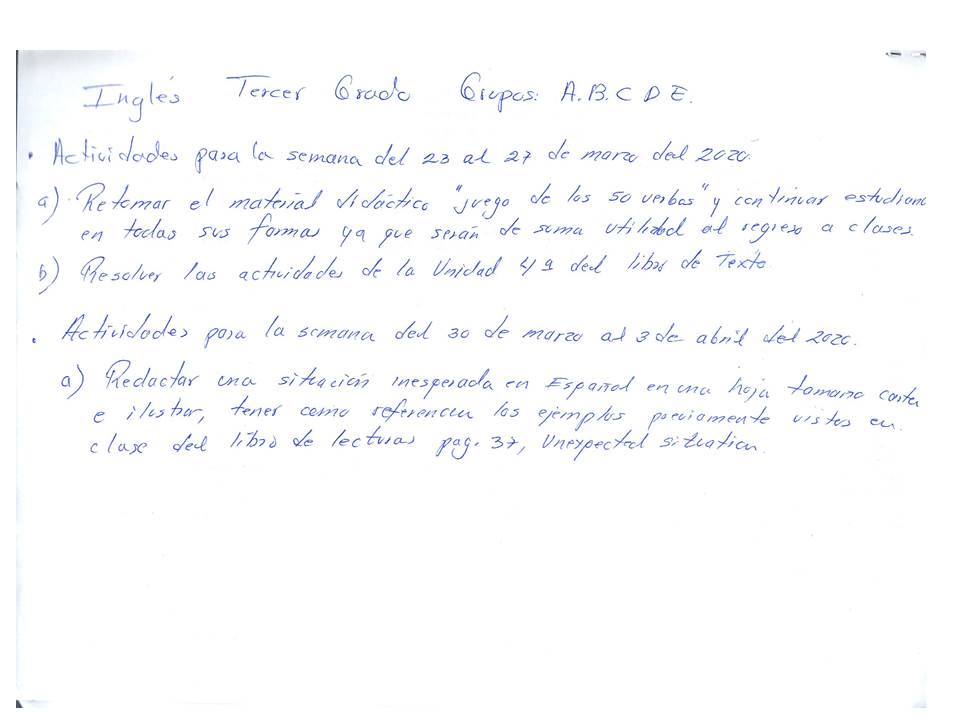 Inglés Tercer Grado Grupos: A.B.C D E.
• Actividades para la semana del 23 al 27 de marzo del 2020.
a) Retomar el material didáctico "juego de los 50 verbos" y continuar estudian
en todas sus formas ya que serán de suma utilidad al regreso a clases.
b) Resolver las actividades de la Unidad 4 del libro de Texto.
• Actividades para la semana del 30 de marzo al 3 de abril del 2020.
a) Redactar una situación inesperada en Español en una hoja tamano carta
e ilustrar, tener como referencia los ejemplos previamente vistos en
clase del libro de lecturas pag. 37, Unexpected situation.